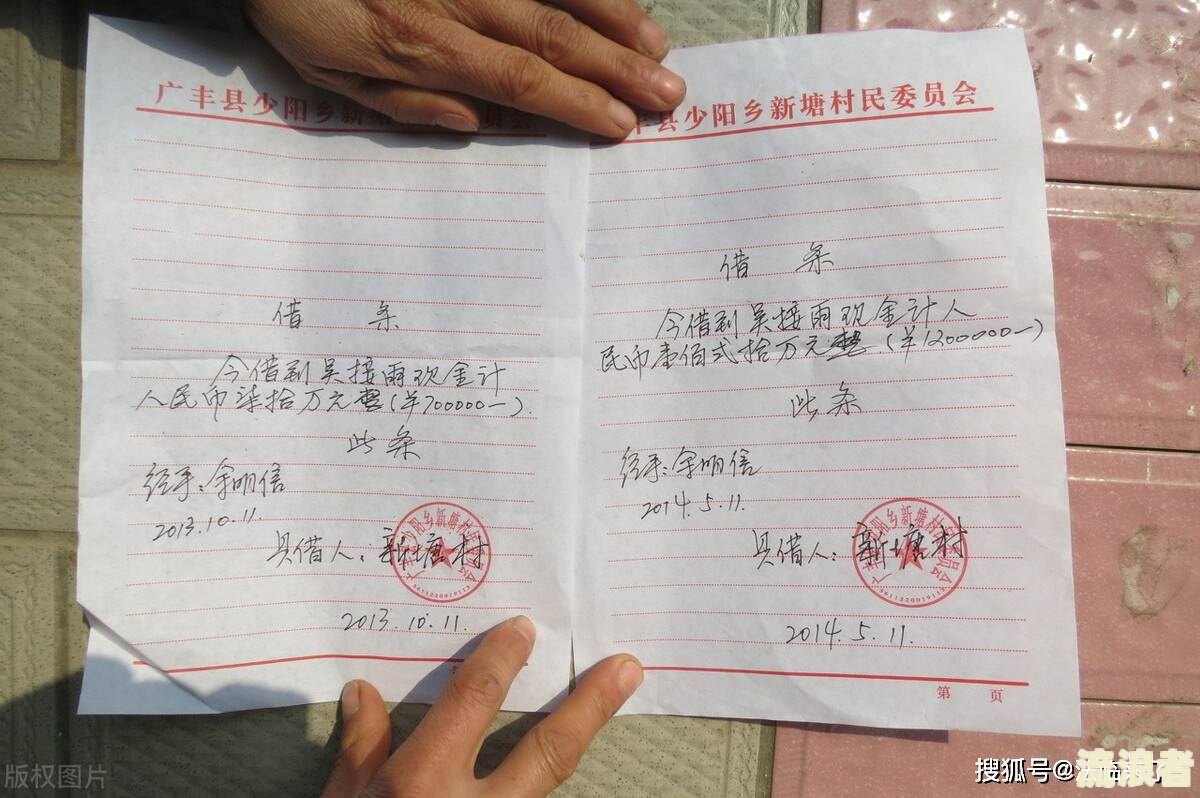 广丰县少阳乡新塘村民委员会
借 条
今借到吴接雨现金计
人民币柒拾万元整(￥700000—).
此条
经手:余明信
2013.10.11.
具借人:新塘村
2013.10.11.
丰县少阳乡新塘村民委员会
借 条
今借到吴接雨现金计人
民币壹佰弍拾万元整.(￥1200000—)
此条
经手:余明信
2014.5.11.
具借人:新塘村
2014.5.11.
第 页
版权图片
搜狐号@
流浪者